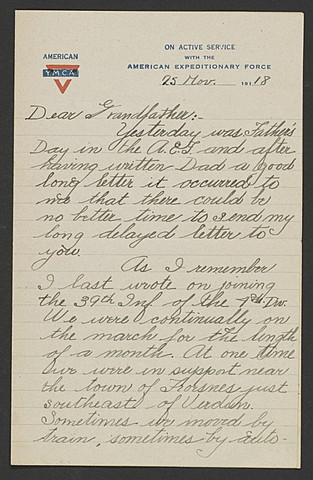 ON ACTIVE SERVICE
WITH THE
AMERICAN EXPEDITIONARY FORCE
AMERICAN
Y.M.C.A.
25 Nov. 191 18
Dear Grandfather:-
Yesterday was Father's
Day in the A.E.F. and after
having written Dad a good
long letter it occurred to
me that there could be
no better time to send my
long delayed letter to
you.
As I remember
I last wrote on joining
the 39th Inf of the Div.
We were continually on
the march for the length
of a month. At one time
we were in support near
the town of just
southeast of Verdun.
Sometimes we moved by
train, sometimes by auto-